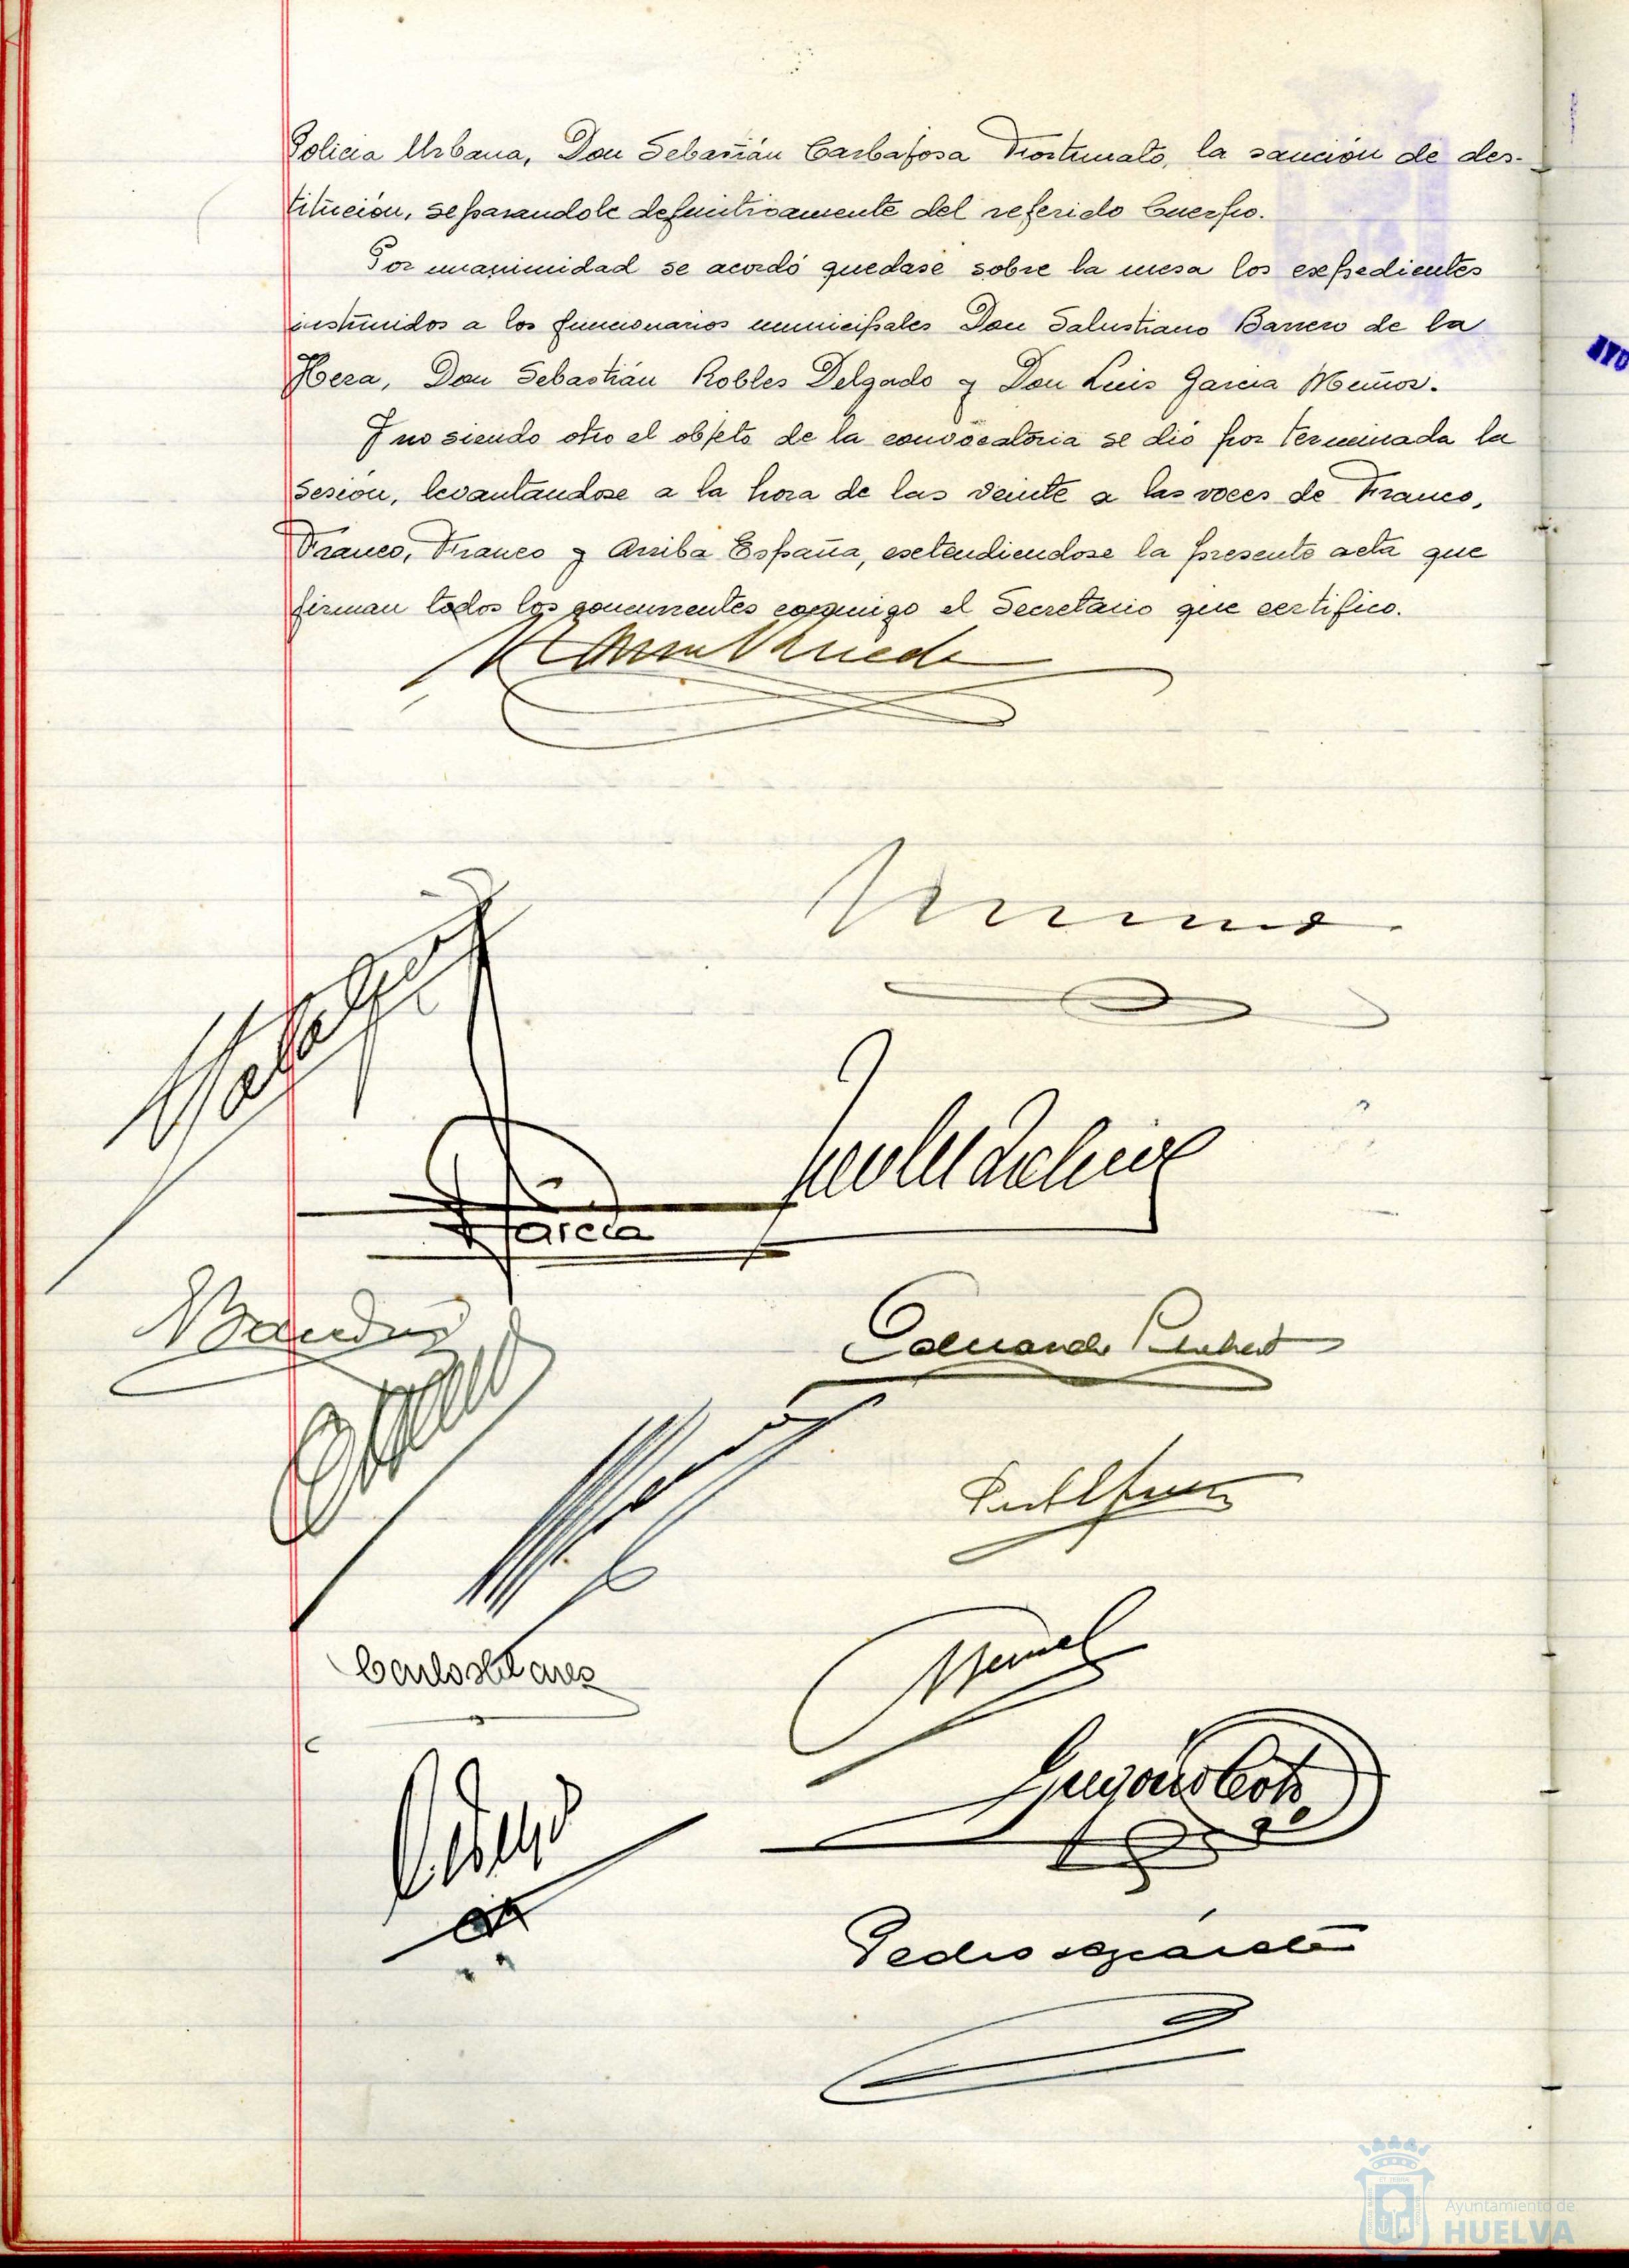 Policia Urbana, Don Sebastián Carbajosa Fortunato, la sanción de des-
titución, separandole definitivamente del referido Cuerpo.
Por unanimidad se acordó quedase sobre la mesa los expedientes
instruidos a los funcionarios municipales Don Salustiano Barrero de la
Hera, Don Sebastián Robles Delgado y Don Luis Garcia Muñoz.
Y no siendo otro el objeto de la convocatoria se dió por terminada la
sesión, levantandose a la hora de las veinte a las voces de Franco,
Franco, Franco y Arriba España, extendiendose la presente acta que
firman todos los concurrentes conmigo el Secretario que certifico.
Garcia
Eduardo
Carlos
Gregorio Coto
Pedro
Ayuntamiento de
HUELVA